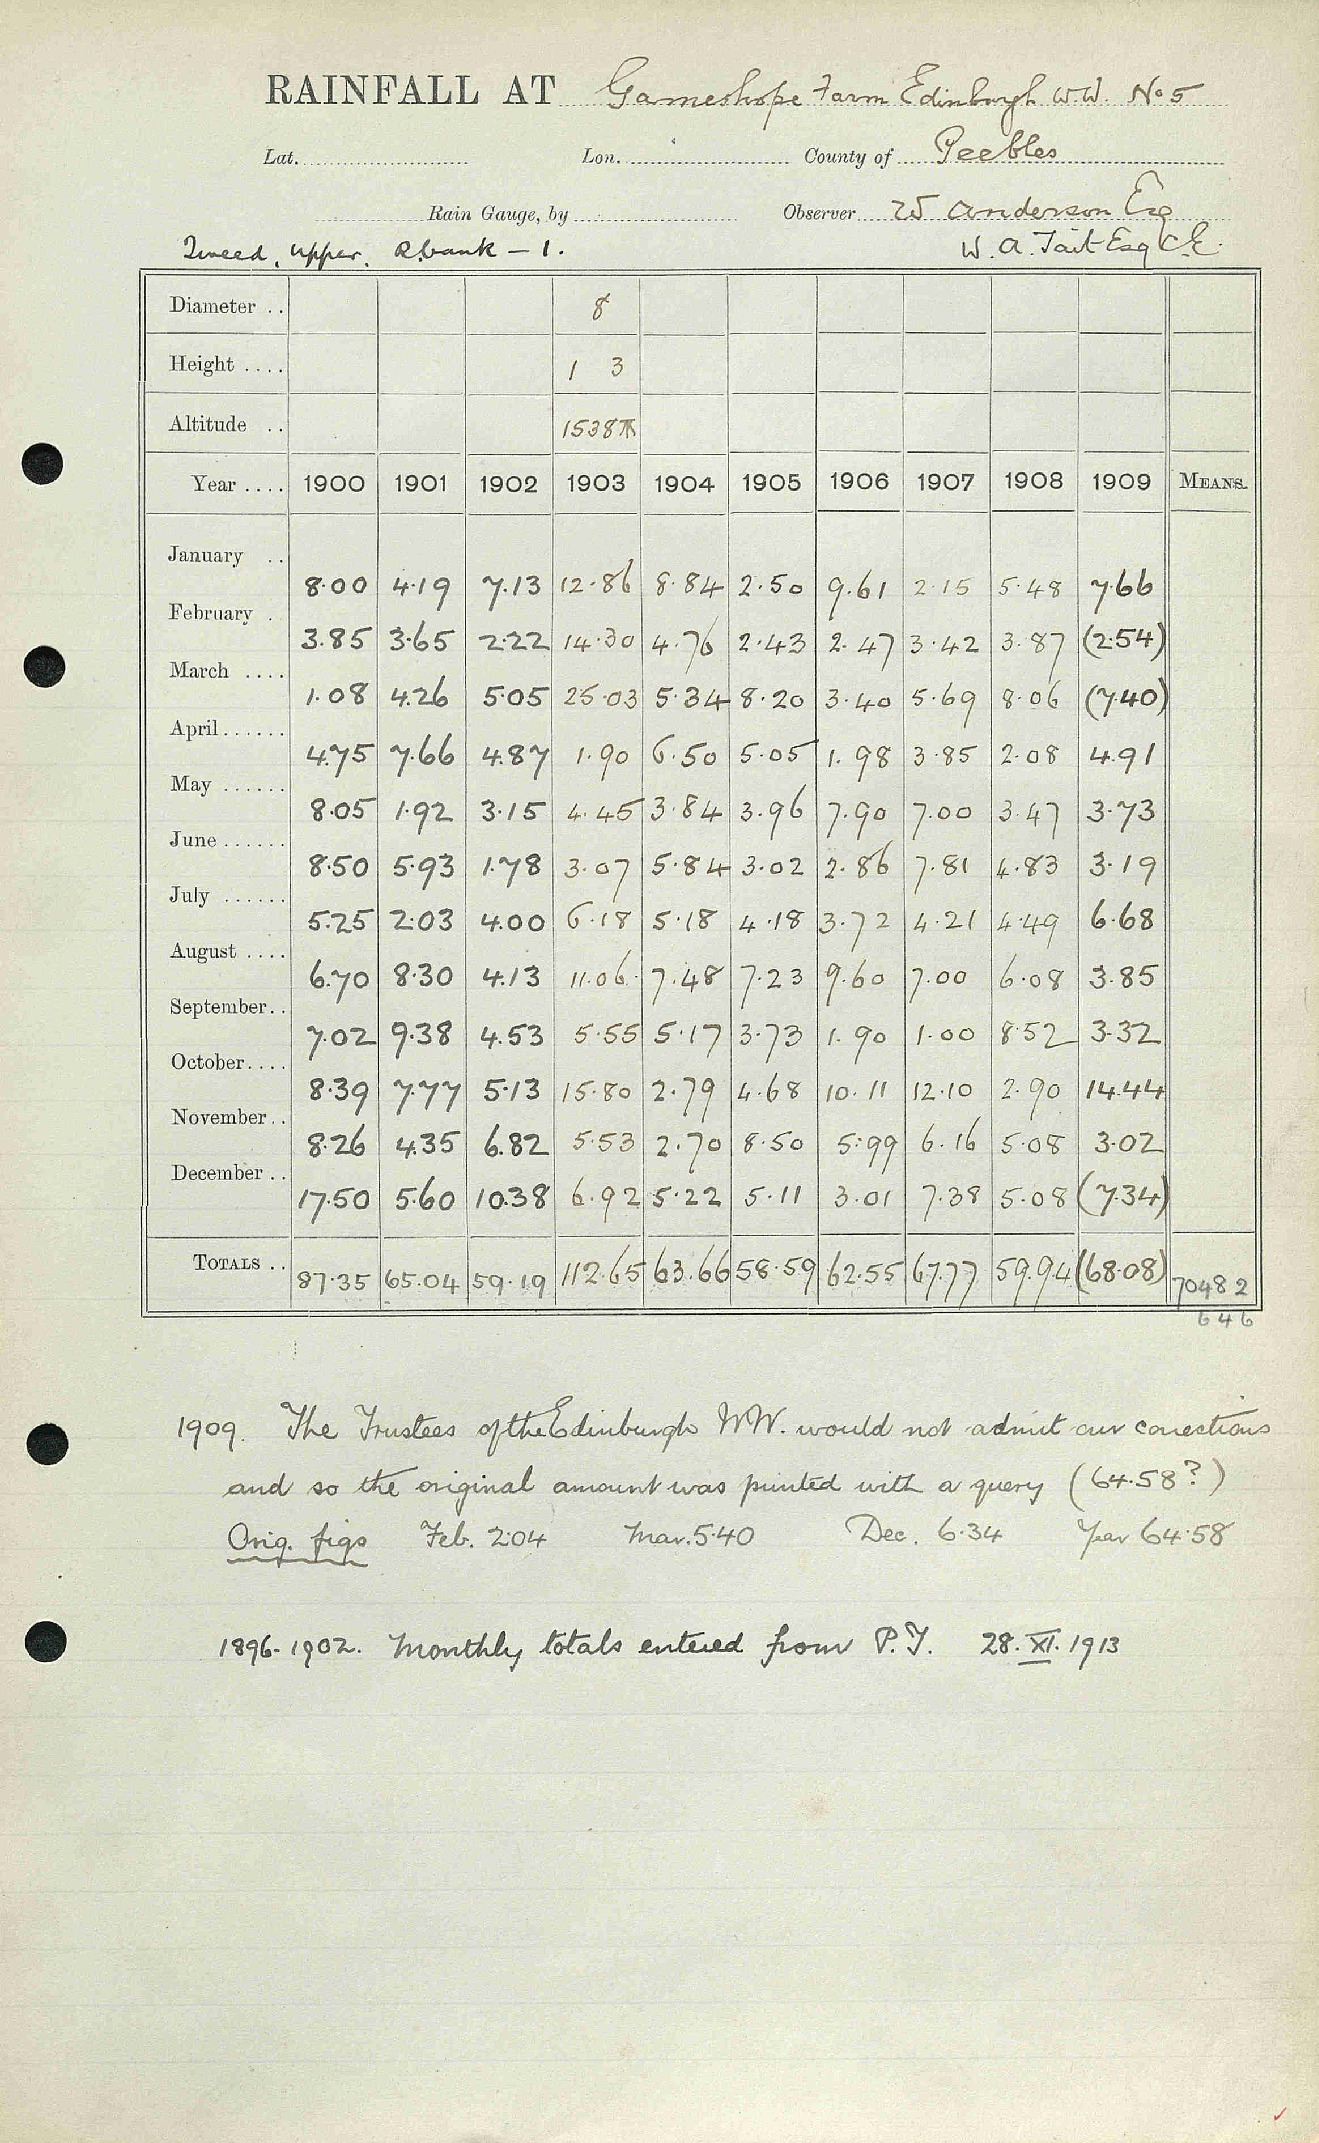 RAINFALL AT Gameshope Farm Edinburgh W.W. No 5
Lat. Lon. County of Peebles
Rain Gauge, by Observer W Anderson Esq
Tweed, Upper. R.bank – 1. W. A. Tait Esq C.E.
Diameter .. 8
Height .... 1 3
Altitude .. 1538 ft
Year .... 1900 1901 1902 1903 1904 1905 1906 1907 1908 1909 MEANS.
January .. 8.00 4.19 7.13 12.86 8.84 2.50 9.61 2.15 5.48 7.66
February . 3.85 3.65 2.22 14.30 4.76 2.43 2.47 3.42 3.87 (2.54)
March .... 1.08 4.26 5.05 25.03 5.34 8.20 3.40 5.69 8.06 (7.40)
April...... 4.75 7.66 4.87 1.90 6.50 5.05 1.98 3.85 2.08 4.91
May ...... 8.05 1.92 3.15 4.45 3.84 3.96 7.90 7.00 3.47 3.73
June ...... 8.50 5.93 1.78 3.07 5.84 3.02 2.86 7.81 4.83 3.19
July ...... 5.25 2.03 4.00 6.18 5.18 4.18 3.72 4.21 4.49 6.68
August .... 6.70 8.30 4.13 11.06 7.48 7.23 9.60 7.00 6.08 3.85
September.. 7.02 9.38 4.53 5.55 5.17 3.73 1.90 1.00 8.52 3.32
October.... 8.39 7.77 5.13 15.80 2.79 4.68 10.11 12.10 2.90 14.44
November.. 8.26 4.35 6.82 5.53 2.70 8.50 5.99 6.16 5.08 3.02
December .. 17.50 5.60 10.38 6.92 5.22 5.11 3.01 7.38 5.08 (7.34)
TOTALS .. 87.35 65.04 59.19 112.65 63.66 58.59 62.55 67.77 59.94 (68.08) 70482
646
1909. The Trustees of the Edinburgh WW. would not admit our corrections
and so the original amount was printed with a query (64.58?)
Orig. figs Feb. 2.04 Mar. 5.40 Dec. 6.34 Year 64.58
1896-1902. Monthly totals entered from P.T. 28.XI.1913